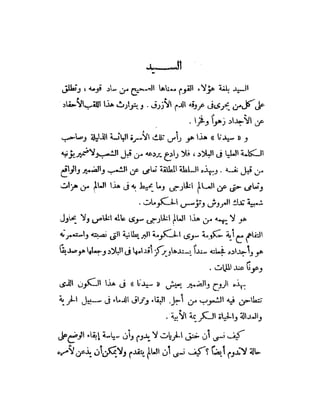 السيد
السيد بلغة هؤلاء القوم معناها الصحيح من ساد قومه ، وتطلق
على كل من يجرى فى عروقه الدم الأزرق . ويتوارث هذا اللقب الأحفاد
عن الأجداد زهواً وفخرا .
و « سيدنا » هذا هو رأس تلك الأسرة البائسة الذليلة وصاحب
الكلمة العليا فى البلاد ، فلا رادع يردعه من قبل الشعب ولا ضمير يؤنبه
من قبل نفسه . وبهذه السلطة المطلقة تعامى عن الشعب والضمير والواقع
وتعامى حتى عن العالم الخارجى وما يحيط به فى هذا العالم من هزات
شعبية تدك العروش وتؤسس الحكومات .
هو لا يهمه من هذا العالم الخارجى سوى عالمه الخاص ولا يحاول
التفاهم مع أية حكومة سوى الحكومة البريطانية التى نصبته واستعمرته
هو وأجداده فجعلته سنداً يسندها ويركز أقدامها فى البلاد وجعلها هو صديقاً
وعوناً عند الملمات .
بهذه الروح والضمير يعيش « سيدنا » فى هذا الكون الذى
تتطاحن فيه الشعوب من أجل البقاء وتراق الدماء فى سبيل الحرية
والعدالة والحياة الكريمة الأبية .
كيف نسى أن خنق الحريات لا يدوم وأن سياسة إبقاء الوضع على
حالة لاتدوم أيضاً ؟ كيف نسى أن العالم يتقدم ولا يمكن أن يذعن لأمره